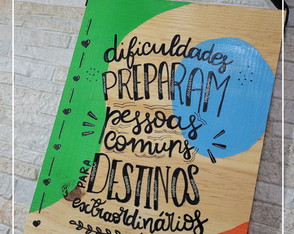 dificuldades
PREPARAM
pessoas
comuns
PARA
DESTINOS
extraordinários